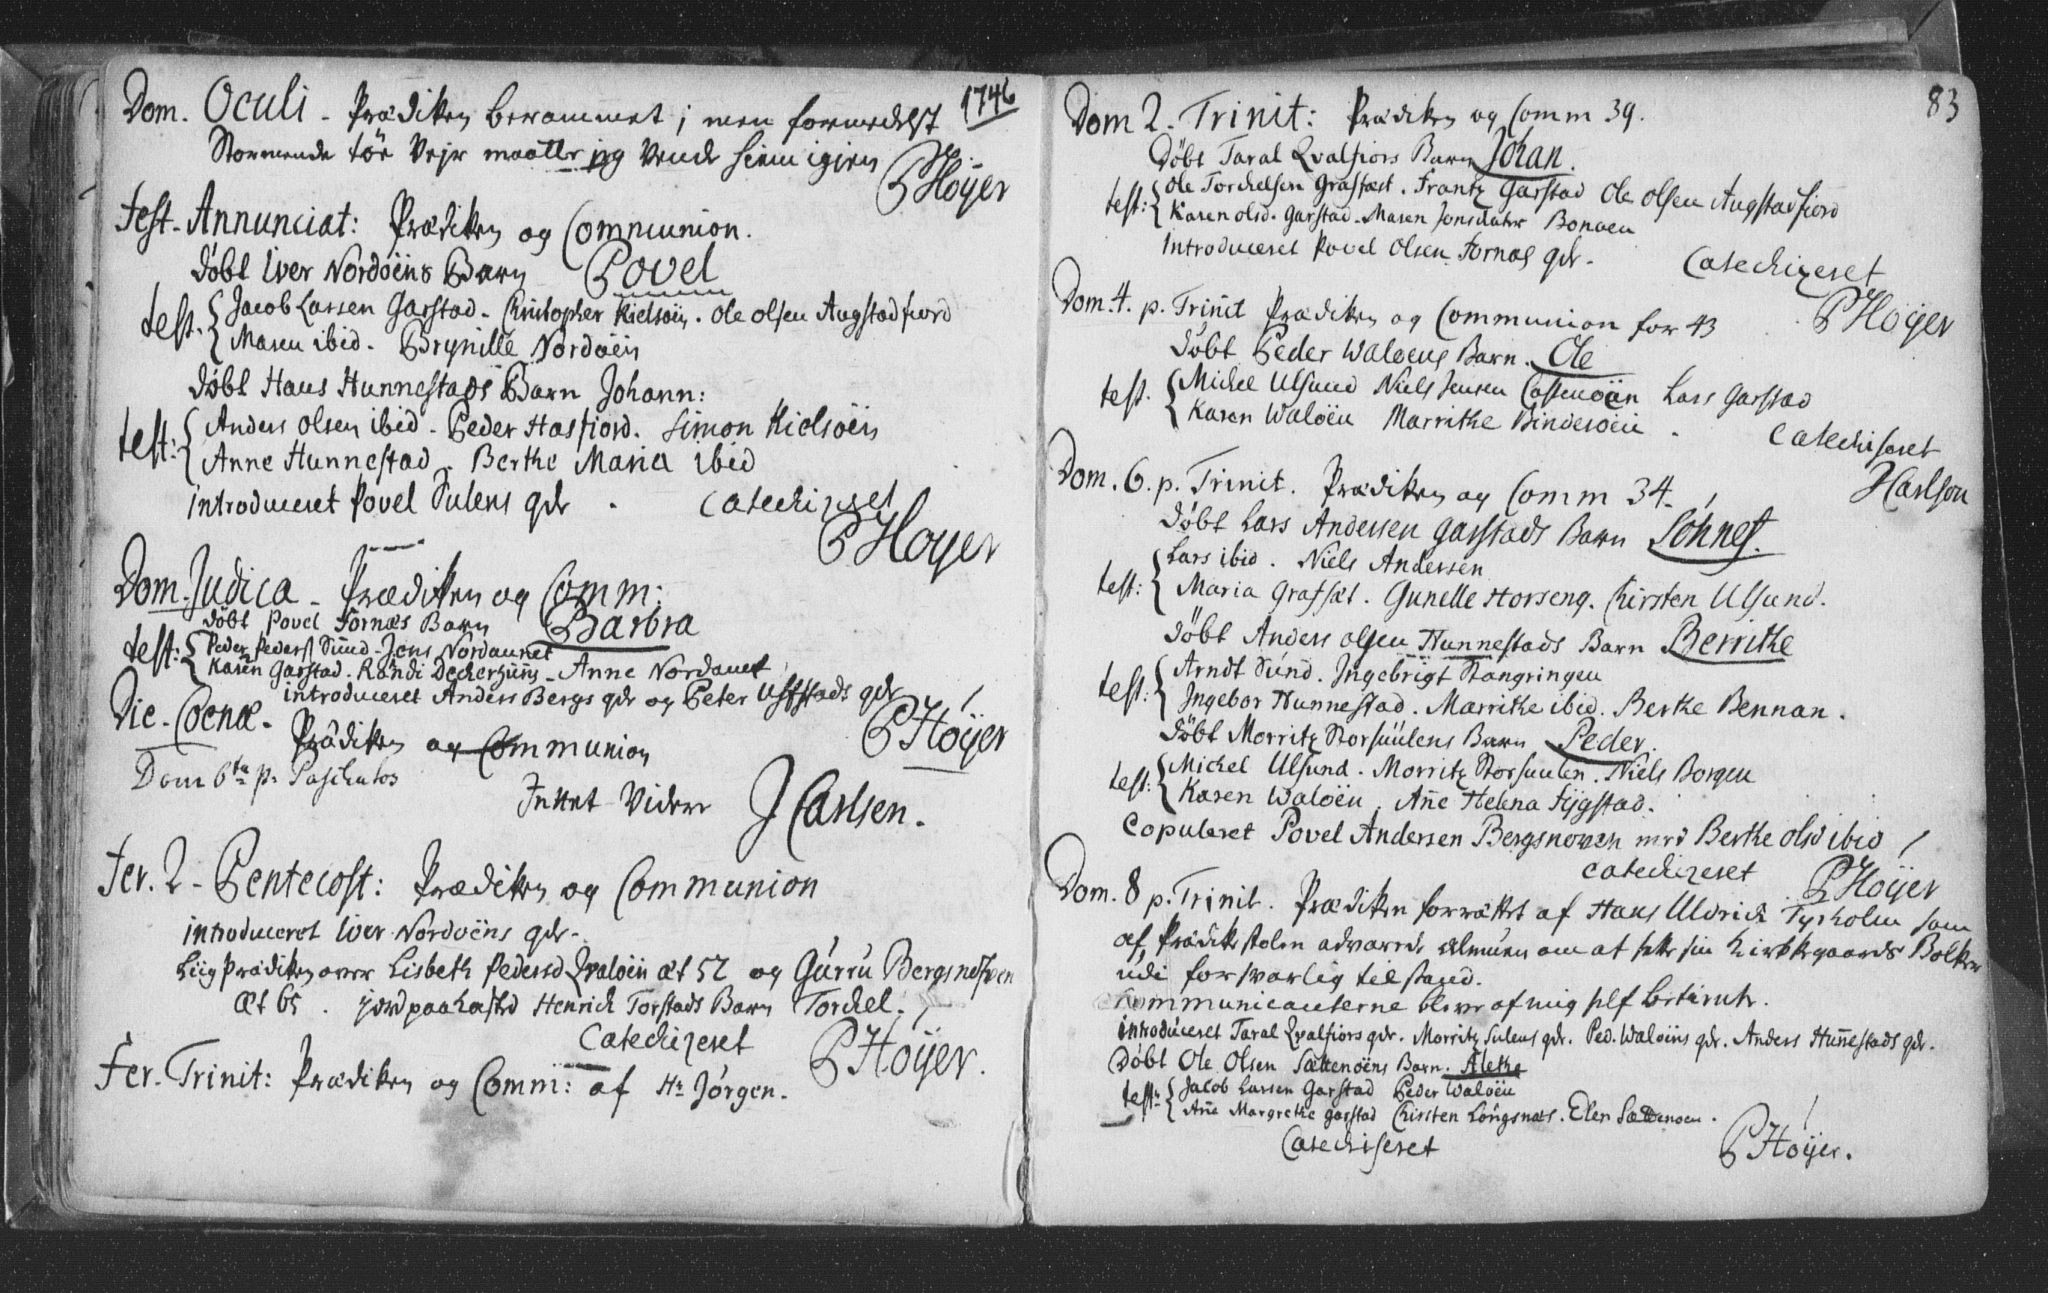 1746
Dom. Oculi - Prædiken berammet; men formedelst
Stormende töe Vejr maatte jeg vende hiem igjen
PHöyer
Fest. Annunciat: Prædiken og Communion.
Döbt Iver Nordöens Barn Povel
test. Jacob Larsen Garstad - Christopher Kielsöin. Ole Olsen Augstadfiord
Maren ibid. Brynille Nordöen
Döbt Hans Hunnestads Barn Johann:
test: Anders Olsen ibid - Peder Hasfiord. Simon Kielsöen
Anne Hunnestad. Berthe Maria ibid
introduceret Povel Sulens qdr. Catechizeret
PHöyer
Dom. Judica - Prædiken og Comm:
döbt Povel Fornæs Barn Barbra
test: Peder Peders Sund - Jens Nordaunet
Karen Garstad. Randi - Anne Nordaunet
introduceret Anders Bergs qdr og Peter Ufstads qdr
PHöyer
Die - Coenæ - Prædiken og Communion
Dom 6ta p. Paschatos
Inttet Videre JCarlsen.
Fer. 2 - Pentecost: Prædiken og Communion
introduceret Iver Nordöens qdr.
Liigprædiken over Lisbeth Pedersd Qvalöen æt 52 og Gurru Bergsnöfven
Æt 65. jordpaakasted Henrich Torstads Barn Torchel.
Catechizeret PHöyer.
Fer. Trinit: Prædiken og Comm: af Hr Jörgen.
83
Dom 2. Trinit: Prædiken og Comm 39.
Döbt Taral Qvalfiors Barn Johan.
test: Ole Torchelsen Grafsæt. Frantz Garstad Ole Olsen Augstadfiord
Karen Olsd. Garstad - Maren Jonsdatter Bonöen
introduceret Povel Olsen Fornæs qdr. Catechizeret
PHöyer
Dom. 4. p. Trinit Prædiken og Communion for 43
Döbt Peder Walöens Barn. Ole
test. Michel Ulsund Niels Jensen Lars Garstad
Karen Walöen Marrithe Bindesöen. Catechiseret
HCarlson
Dom. 6. p. Trinit. Prædiken og Comm 34.
Döbt Lars Andersen Garstads Barn
test: Lars ibid. Niels Andersen
Maria Grafsæt. Gunelle Horseng. Chirsten Ulsund.
Döbt Anders Olsen Hunnestads Barn Berrithe
test: Arndt Sund. Ingebrigt Stangringen
Ingebor Hunnestad. Marrithe ibid. Berthe Bennan.
Döbt Morritz Storsuulens Barn Peder.
test: Michel Ulsund. Morritz Storsuulen. Niels Borgen
Karen Walöen. Añe Helena Fygstad.
Copuleret Povel Andersen Bergsnöven med Berthe Olsd ibid
Catechizeret PHöyer
Dom. 8 p. Trinit. Prædiken forrættet af Hans Uldrich Tyrholm som
af Prædikestolen advarede almuen om at sette sin Kirkegaards Bolker
udi forsvarlig tilstand.
Communicanterne bleve af mig self betiente.
introduceret Taral Qvalfiors qdr. Morritz Sulens qdr. Ped. Walöens qdr. Anders Huñestads qdr.
Döbt Ole Olsen Sættenöens Barn. Alethe
test: Jacob Larsen Garstad Peder Walöen
Añe Margrethe Garstad Chirsten Longsnæs. Elen Sættenöen.
Catechiseret PHöyer.